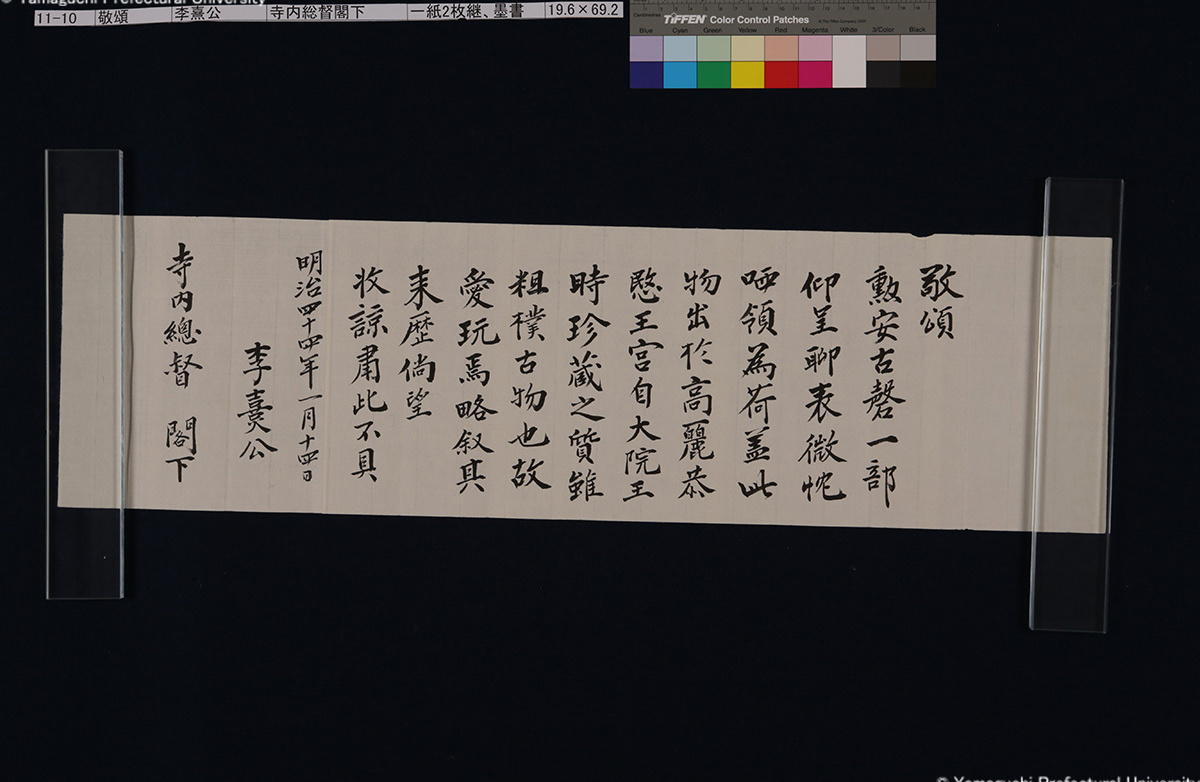 © Yamaguchi Prefectural University
11-10 敬頌 李熹公 寺内総督閣下 一紙2枚継、墨書 19.6×69.2
Centimetres
TIFFEN Color Control Patches
Blue Cyan Green Yellow Red Magenta White 3/Color Black
敬頌
勲安古磬一部
仰呈聊表微忱
哂領為荷蓋此
物出於高麗恭
愍王宮自大院王
時珍蔵之質雖
粗樸古物也故
愛玩焉略叙其
来歷倘望
收諒肅此不具
明治四十四年一月十四日
李熹公
寺内總督 閣下
© Yamaguchi Prefectural University